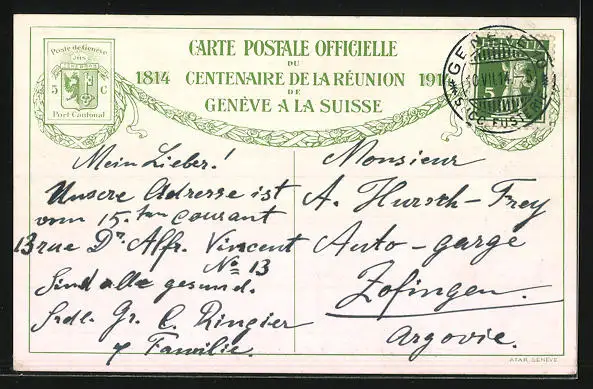 Poste de Genève
5 C
Port Cantonal
CARTE POSTALE OFFICIELLE
DU
1814 CENTENAIRE DE LA RÉUNION 191
DE
GENÈVE A LA SUISSE
5
Mein Lieber!
Unsere Adresse ist
vom 15. ten courant
13 rue Dr. Alfr. Vincent
No 13
Sind alle gesund.
Srdl. Gr. C. Ringier
& Familie.
Monsieur
A. Hürsch-Frey
Auto-garge
Zofingen.
Argovie.
ATAR, GENÈVE